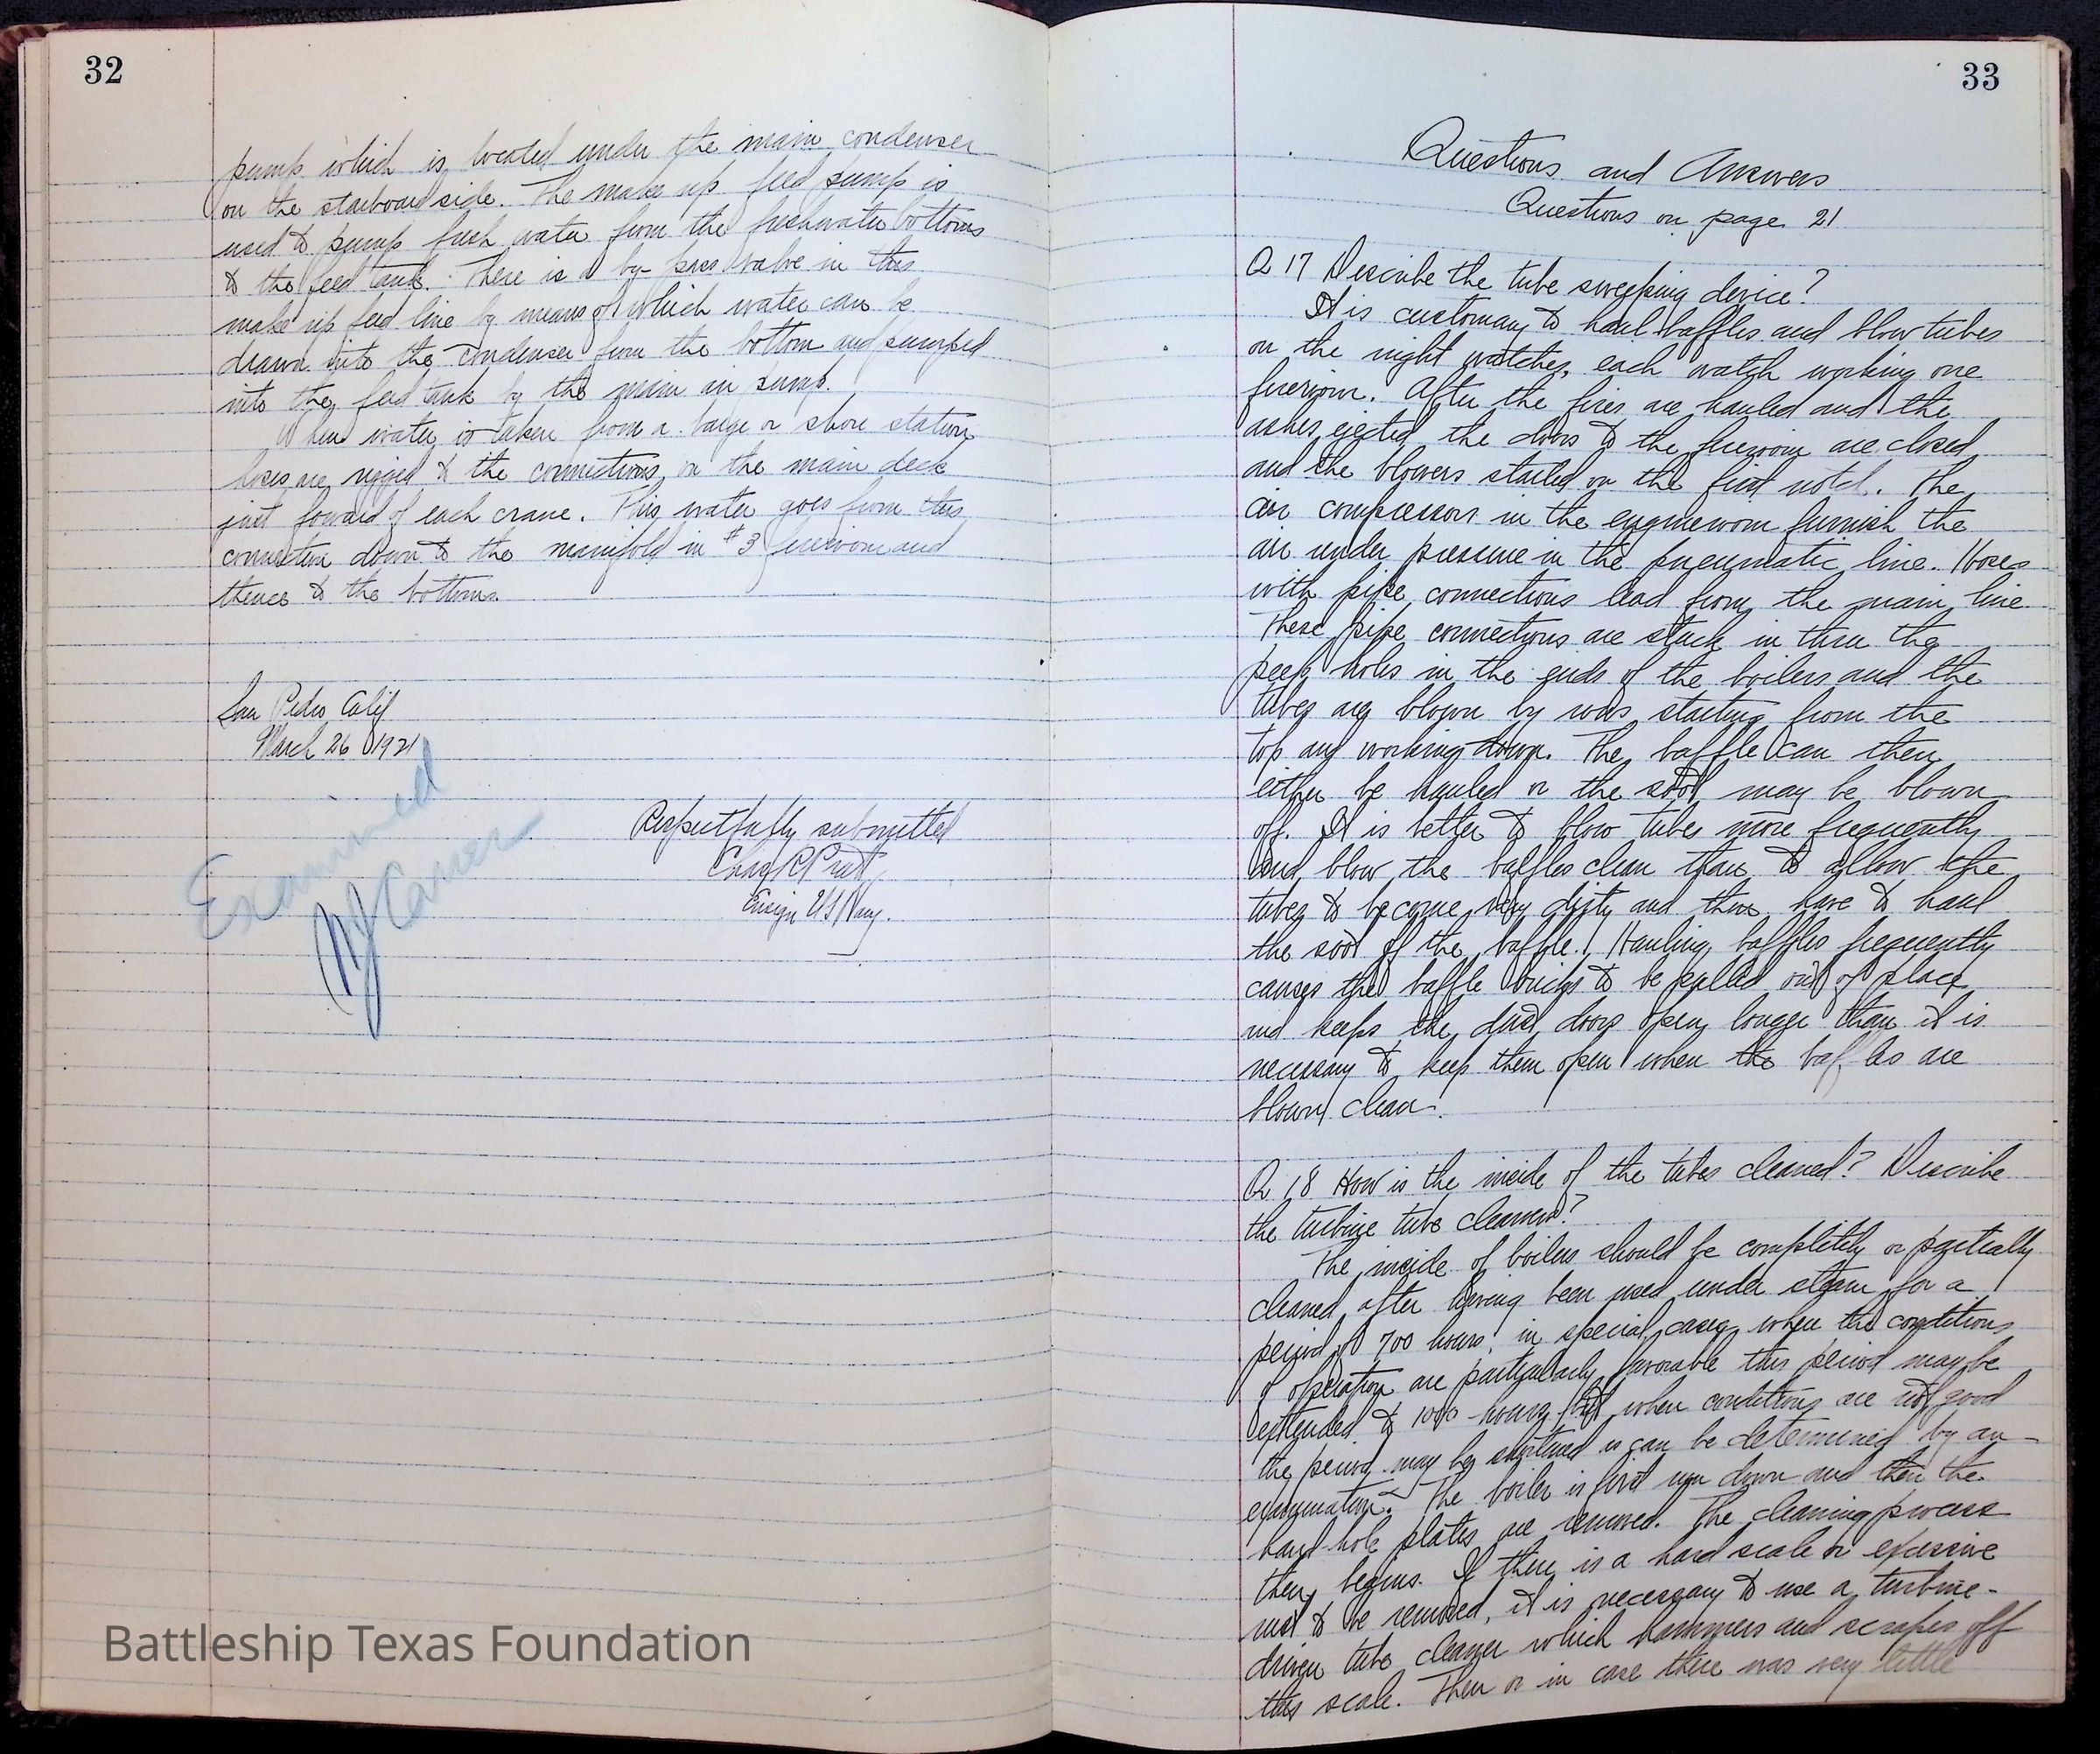 32
pump which is located under the main condenser
on the starboard side. The make up feed pump is
used to pump fresh water from the freshwater bottoms
to the feed tank. There is a by-pass valve in this
make up feed line by means of which water can be
drawn into the condenser from the bottom and pumped
into the feed tank by the main air pump.
When water is taken from a barge or shore station
hoses are rigged to the connections on the main deck
just foward of each crane. This water goes from this
connection down to the manifold in #3 fireroom and
thence to the bottoms.
San Pedro Calif
March 26 1921
Examined
Respectfully submitted
Chas R Pratt
Ensign US Navy.
Battleship Texas Foundation
33
Questions and Answers
Questions on page 21
Q 17 Describe the tube sweeping device?
It is customary to haul baffles and blow tubes
on the night watches, each watch working one
fireroom. After the fires are hauled and the
ashes ejected the doors to the fireroom are closed
and the blowers started on the first notch. The
air compressors in the engineroom furnish the
air under pressure in the pneumatic line. Hoses
with pipe connections lead from the main line.
These pipe connections are stuck in thru the
peep holes in the ends of the boilers and the
tubes are blown by rows starting from the
top and working down. The baffle can then
either be hauled or the soot may be blown
off. It is better to blow tubes more frequently
and blow the baffles clean than to allow the
tubes to become very dirty and then have to haul
the soot off the baffle. Hauling baffles frequently
causes the baffle bricks to be pulled out of place
and keeps the dust doors open longer than it is
necessary to keep them open when the baffles are
blown clean.
Q 18 How is the inside of the tubes cleaned? Describe
the turbine tube cleaners?
The inside of boilers should be completely or partially
cleaned after having been used under steam for a
period of 700 hours; in special cases when the conditions
of operation are particularly favorable this period may be
extended to 1000 hours, but when conditions are not good
the period may be shortened as can be determined by an
examination. The boiler is first run down and then the
hand hole plates are removed. The cleaning process
then begins. If there is a hard scale or excessive
rust to be removed, it is necessary to use a turbine-
driven tube cleaner which hammers and scrapes off
this scale. Then or in case there was very little